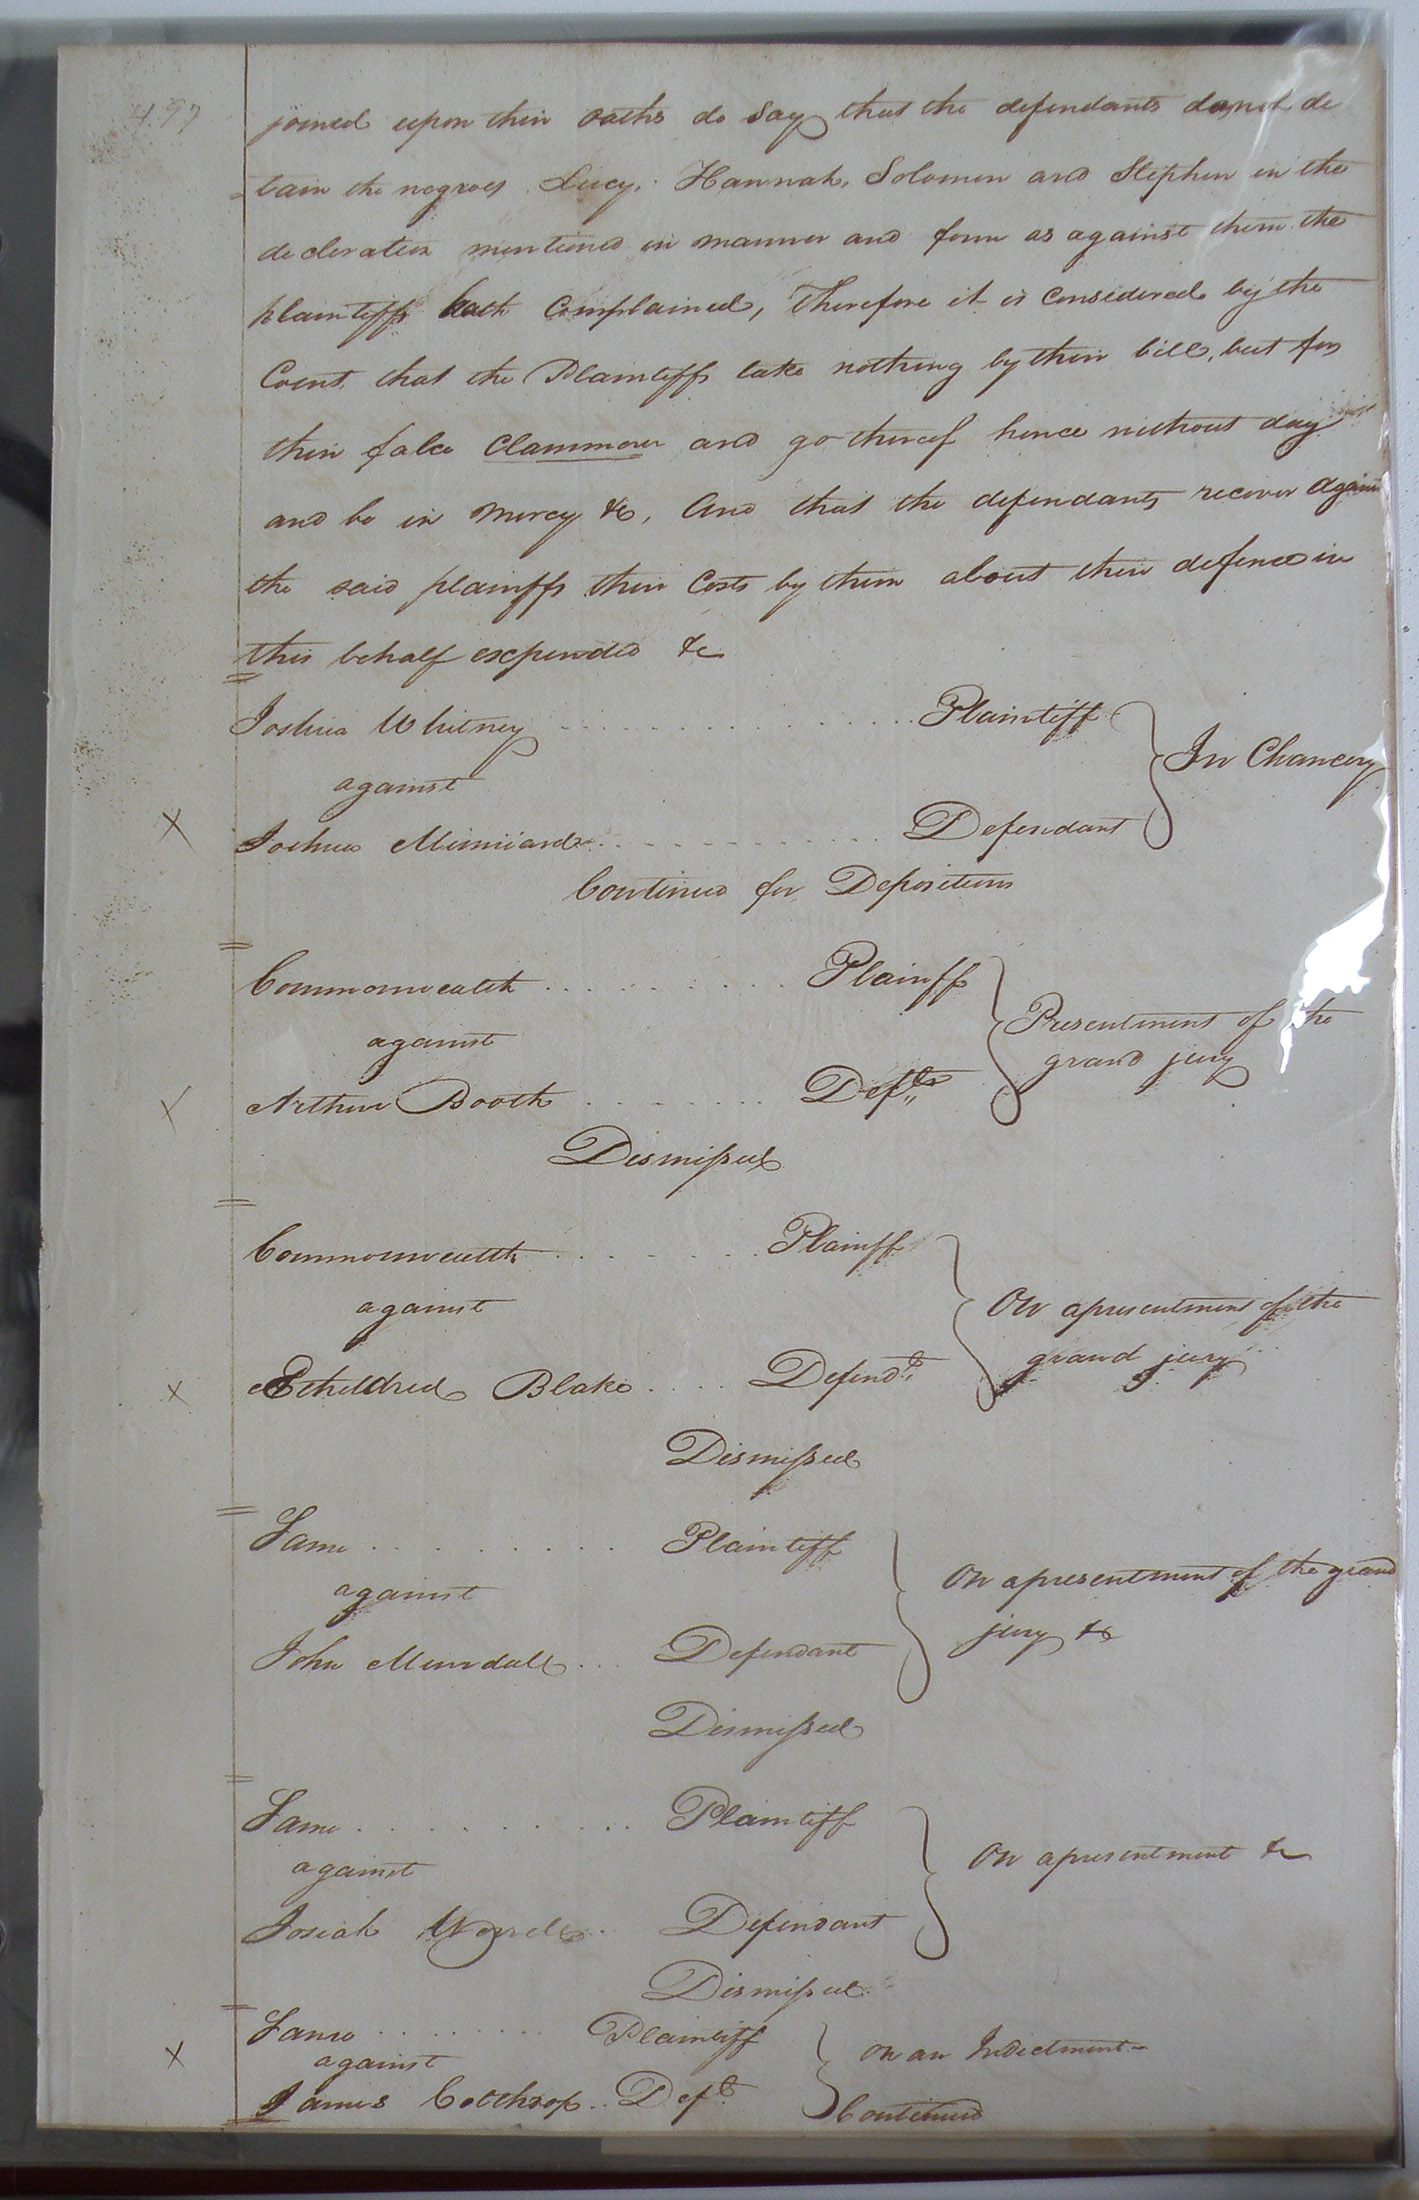 497
joined upon their oaths do say that the defendants do not de
tain the negroes Lucy, Hannah, Solomon and Stephen in the
decleration mentioned in manner and form as against them the
plaintiffs hath Complained, Therefore it is Considered by the
Court that the Plaintiffs take nothing by their bill, but for
their false Clammour and go thereof hence without day
and be in mercy &c, And that the defendants recover against
the said plainffs their Costs by them about their defence in
this behalf expended &c
Joshua Whitney Plaintiff
against In Chancery
Joshua Defendant
Continued for Depositions
Commonwealth Plainff
against Presentment of the
grand jury
Arthur Booth Defts
Dismissed
Commonwealth Plainff
against On a presentment of the
grand jury
Etheldred Blake Defendt
Dismissed
Same Plaintiff
against On a presentment of the grand
jury &c
John Defendant
Dismissed
Same Plaintiff
against On a presentment &c
Josiah Defendant
Dismissed
Same Plaintiff
against On an Indictment
James Colthrop Deft
Continued